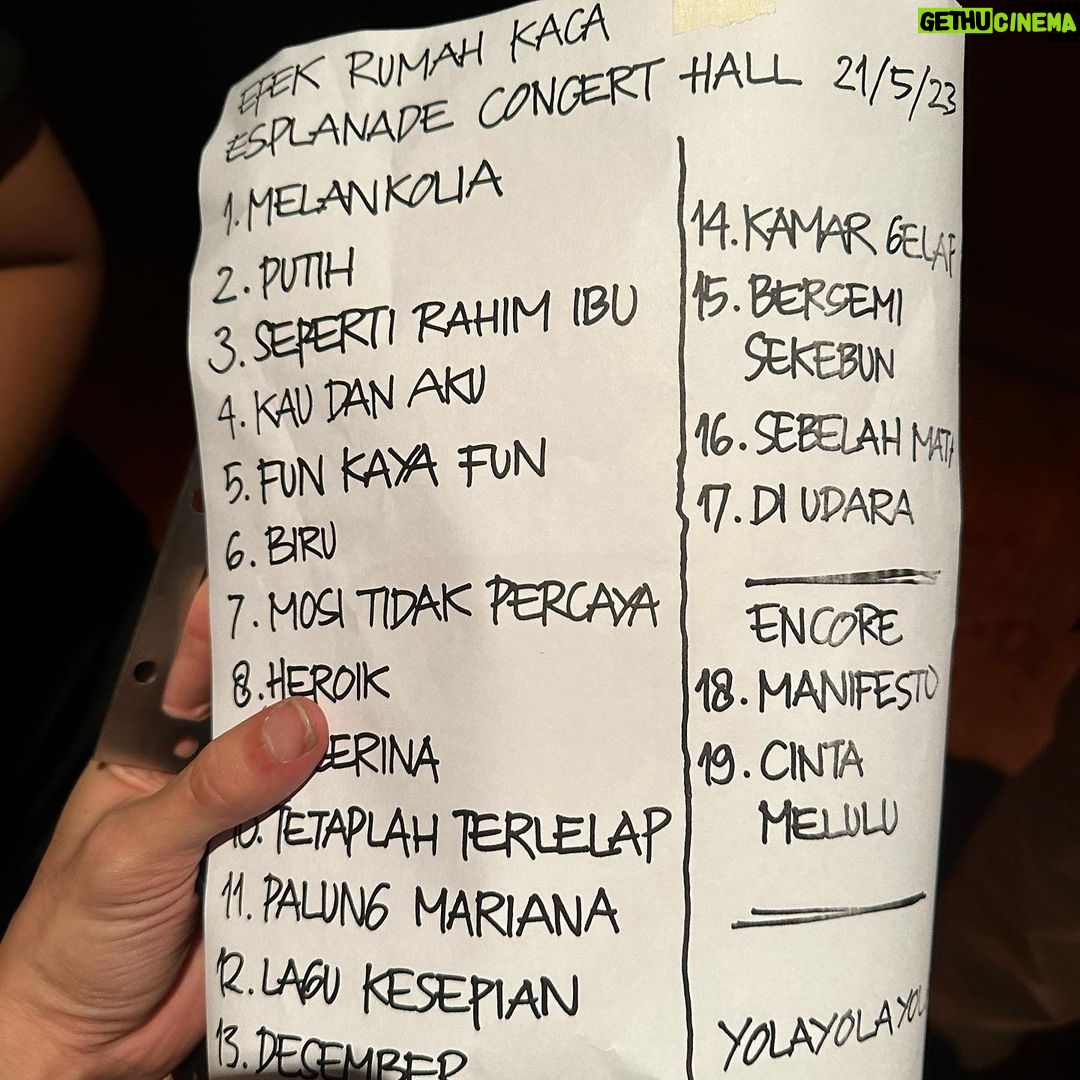 GETHUCINEMA
EFEK RUMAH KACA
ESPLANADE CONCERT HALL 21/5/23
1. MELANKOLIA
2. PUTIH
3. SEPERTI RAHIM IBU
4. KAU DAN AKU
5. FUN KAYA FUN
6. BIRU
7. MOSI TIDAK PERCAYA
8. HEROIK
ERINA
10. TETAPLAH TERLELAP
11. PALUNG MARIANA
12. LAGU KESEPIAN
13. DESEMBER
14. KAMAR GELAP
15. BERSEMI
SEKEBUN
16. SEBELAH MATA
17. DI UDARA
ENCORE
18. MANIFESTO
19. CINTA
MELULU
YOLAYOLAYOL